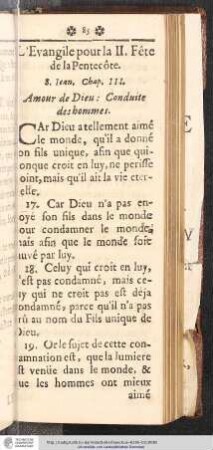 ❊ 85 ❊
L'Evangile pour la II. Fête
de la Pentecôte.
S. Jean. Chap. III.
Amour de Dieu: Conduite
des hommes.
CAr Dieu a tellement aimé
le monde, qu'il a donné
on fils unique, afin que qui-
onque croit en luy, ne perisse
oint, mais qu'il ait la vie eter-
elle.
17. Car Dieu n'a pas en-
oyé son fils dans le monde
our condamner le monde,
nais afin que le monde soit
auvé par luy.
18. Celuy qui croit en luy,
'est pas condamné, mais ce-
uy qui ne croit pas est déja
ondamné, parce qu'il n'a pas
rû au nom du Fils unique de
Dieu.
19. Or le sujet de cette con-
amnation est, que la lumiere
st venüe dans le monde, &
ue les hommes ont mieux
aimé